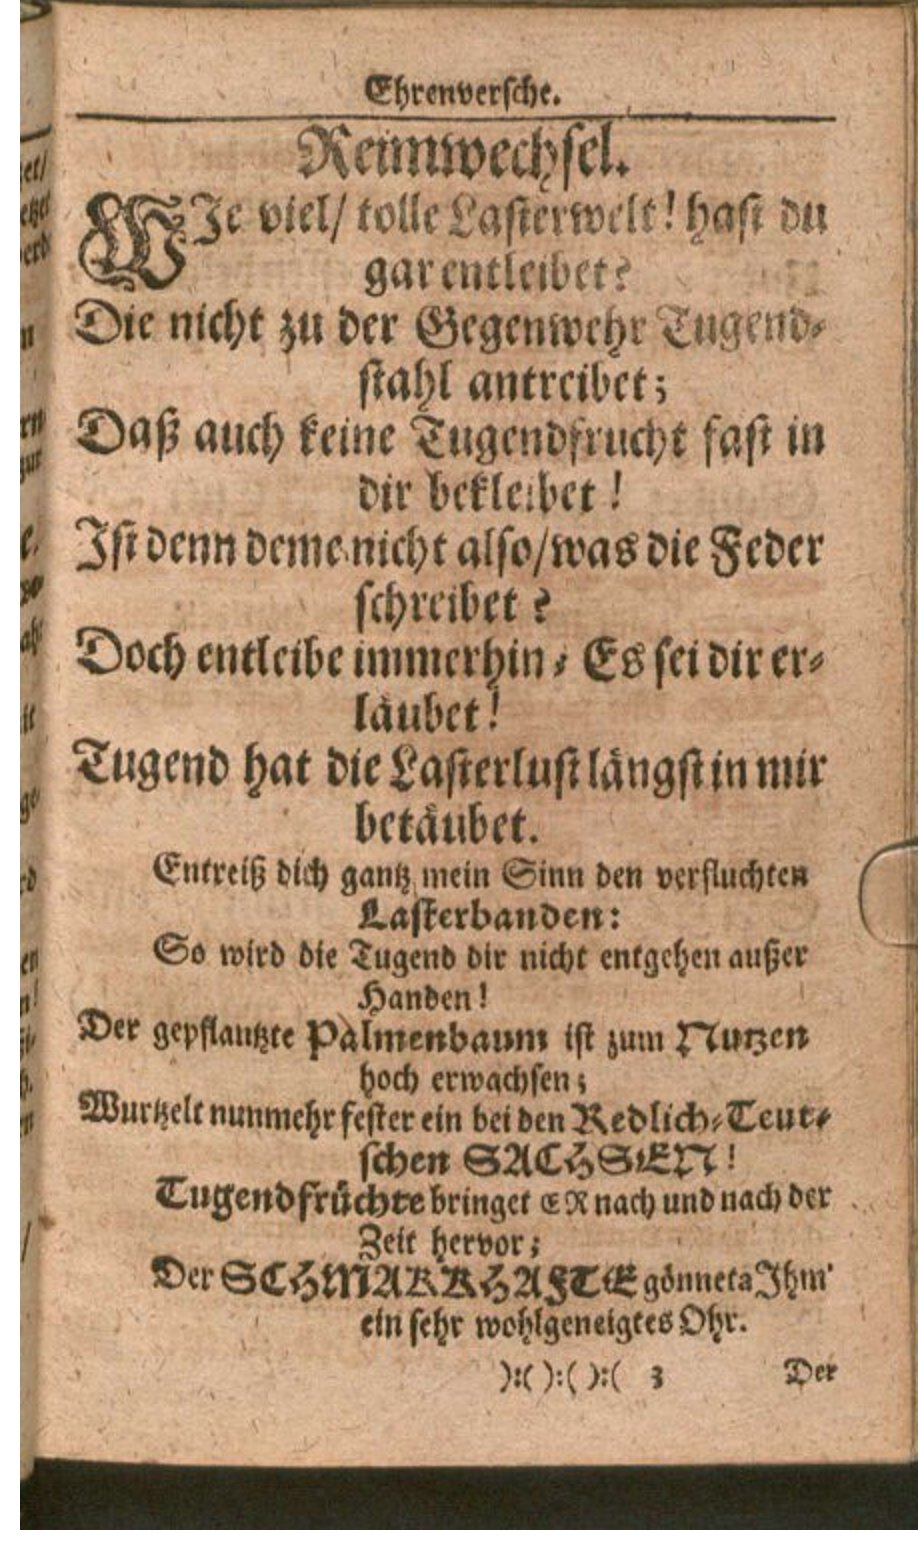 Ehrenversche.
Reimwechsel.
WJe viel/ tolle Lasterwelt! hast du
gar entleibet?
Die nicht zu der Gegenwehr Tugend-
stahl antreibet;
Daß auch keine Tugendfrucht fast in
dir bekleibet!
Jst denn deme nicht also/was die Feder
schreibet?
Doch entleibe immerhin; Es sei dir er-
läubet!
Tugend hat die Lasterlust längst in mir
betäubet.
Entreiß dich gantz mein Sinn den verfluchten
Lasterbanden:
So wird die Tugend dir nicht entgehen außer
Handen!
Der gepflantzte Palmenbaum ist zum Nutzen
hoch erwachsen;
Wurtzelt nunmehr fester ein bei den Redlich-Teut-
schen SACHSEN!
Tugendfrüchte bringet ER nach und nach der
Zeit hervor;
Der SCHMAKKHAFTE gönneta Jhm'
ein sehr wohlgeneigtes Ohr.
):( ):( ):( 3 Der